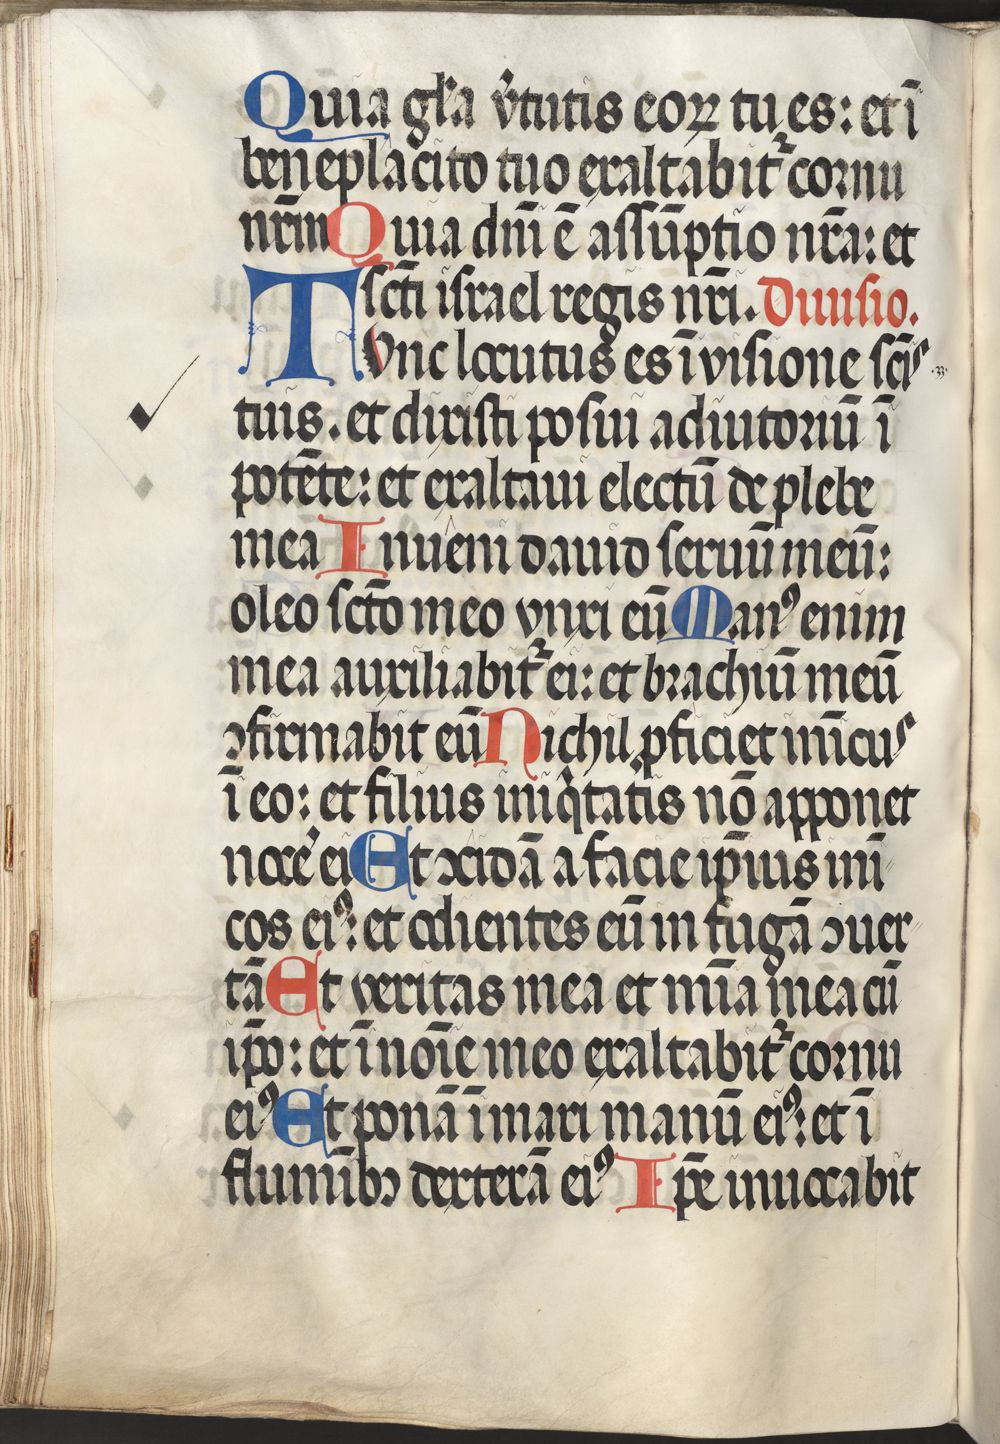 Quia gl̄a v̄tutis eoꝝ tu es: et ī
beneplacito tuo exaltabit᷑ cornu
nr̄m Quia dn̄i ē assūptio nr̄a: et
sct̄i israel regis nr̄i. Diuisio.
Tvnc locutus es ī visione sc̄is
tuis. et dixisti posui adiutoriū ī
potēte: et exaltaui electū de plebe
mea Inueni dauid seruū meū:
oleo sc̄to meo vnxi eū Manꝰ enim
mea auxiliabit᷑ ei: et brachiū meū
ꝯfirmabit eū Nichil ꝓficiet inīcus
ī eo: et filius iniq̇tatis nō apponet
nocē ei Et ↄcidā a facie ip̄ius inī
cos eiꝰ: et odientes eū in fugā ↄuer
tā Et veritas mea et mīa mea cū
ip̄o: et ī noīe meo exaltabit᷑ cornu
eiꝰ Et ponā ī mari manū eiꝰ: et ī
flumībꝫ dexterā eiꝰ Ip̄e inuocabit